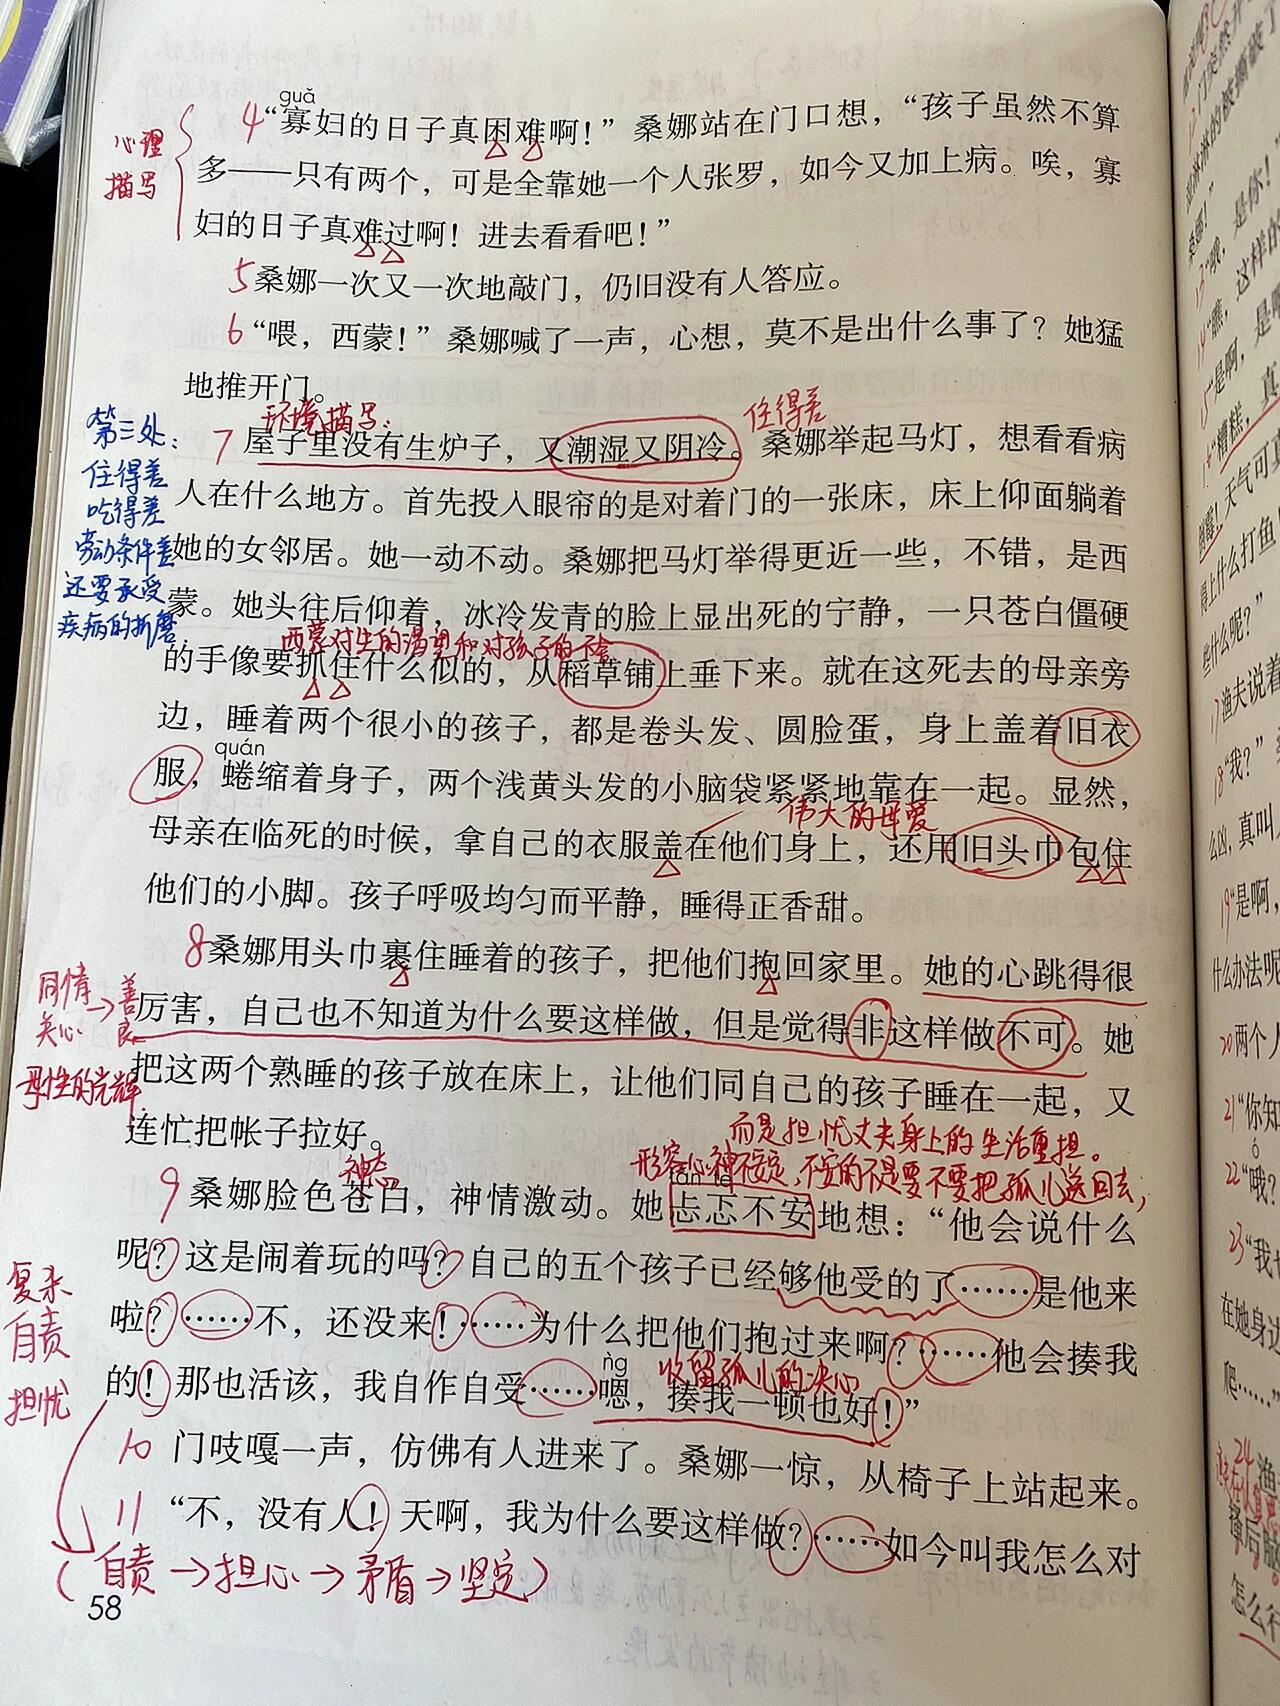 guǎ
4“寡妇的日子真困难啊！”桑娜站在门口想，“孩子虽然不算
心理
描写
多——只有两个，可是全靠她一个人张罗，如今又加上病。唉，寡
妇的日子真难过啊！进去看看吧！”
5桑娜一次又一次地敲门，仍旧没有人答应。
6“喂，西蒙！”桑娜喊了一声，心想，莫不是出什么事了？她猛
地推开门。
环境描写：
住得差
第三处：
住得差
吃得差
劳动条件差
还要承受
疾病的折磨
7屋子里没有生炉子，又潮湿又阴冷。桑娜举起马灯，想看看病
人在什么地方。首先投入眼帘的是对着门的一张床，床上仰面躺着
她的女邻居。她一动不动。桑娜把马灯举得更近一些，不错，是西
蒙。她头往后仰着，冰冷发青的脸上显出死的宁静，一只苍白僵硬
西蒙对生的渴望和对孩子的不舍
的手像要抓住什么似的，从稻草铺上垂下来。就在这死去的母亲旁
边，睡着两个很小的孩子，都是卷头发、圆脸蛋，身上盖着旧衣
quán
服，蜷缩着身子，两个浅黄头发的小脑袋紧紧地靠在一起。显然，
伟大的母爱
母亲在临死的时候，拿自己的衣服盖在他们身上，还用旧头巾包住
他们的小脚。孩子呼吸均匀而平静，睡得正香甜。
8桑娜用头巾裹住睡着的孩子，把他们抱回家里。她的心跳得很
同情
关心→善良
母性的光辉
厉害，自己也不知道为什么要这样做，但是觉得非这样做不可。她
把这两个熟睡的孩子放在床上，让他们同自己的孩子睡在一起，又
连忙把帐子拉好。
而是担忧丈夫身上的生活重担。
形容心神不定，不安的不是要不要把孤儿送回去，
神态
tǎn tè
9桑娜脸色苍白，神情激动。她忐忑不安地想：“他会说什么
呢？这是闹着玩的吗？自己的五个孩子已经够他受的了……是他来
复杂
自责
担忧
啦？……不，还没来！……为什么把他们抱过来啊？……他会揍我
ǹg
收留孤儿的决心
的！那也活该，我自作自受……嗯，揍我一顿也好！”
10门吱嘎一声，仿佛有人进来了。桑娜一惊，从椅子上站起来。
11“不，没有人！天啊，我为什么要这样做？……如今叫我怎么对
（自责→担心→矛盾→坚定）
58
13“哦，是你！
14“瞧，这样的
15“是啊，是
16“糟糕，真
倒霉！天气可真
得上什么打鱼
些什么呢？”
17渔夫说着
18“我？”
么凶，真叫
19“是啊，
什么办法呢
20两个人
21“你知
ó
22“哦？
23“我也
在她身边
爬……”
24渔
搔后脑
怎么行